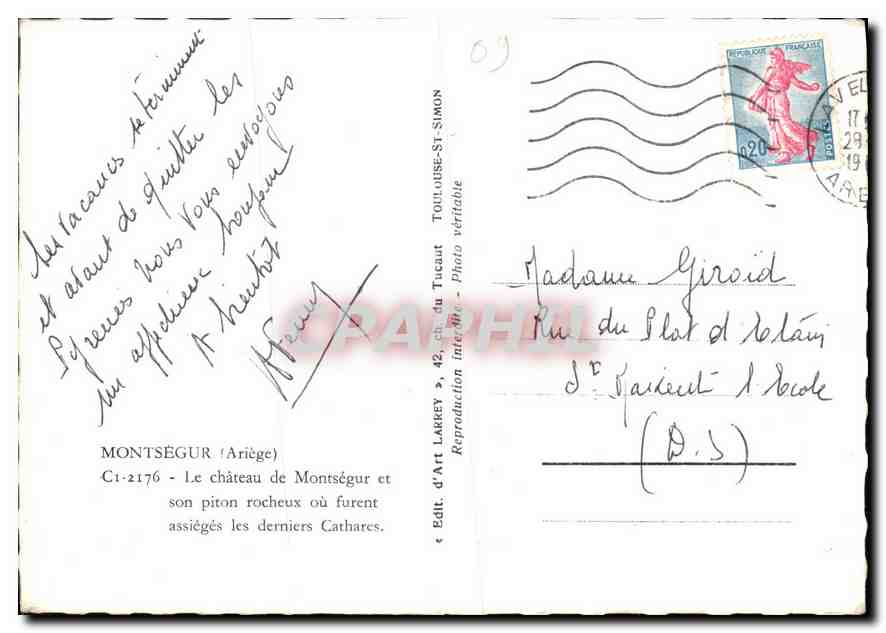 09
Les vacances se terminent
et avant de quitter les
Pyrénées nous vous envoyons
un affectueux bonjour
A bientôt
MONTSÉGUR (Ariège)
C1-2176 - Le château de Montségur et
son piton rocheux où furent
assiégés les derniers Cathares.
« Edit. d'Art LARREY », 42, ch. du Tucaut TOULOUSE-ST-SIMON
Reproduction interdite - Photo véritable
REPUBLIQUE FRANÇAISE
0,20
POSTES
LAVEL
17
28
19
ARIE
Madame Giroïd
Rue du Plat d'Etain
St Maixent l'Ecole
(D.S)
CPAPHIL